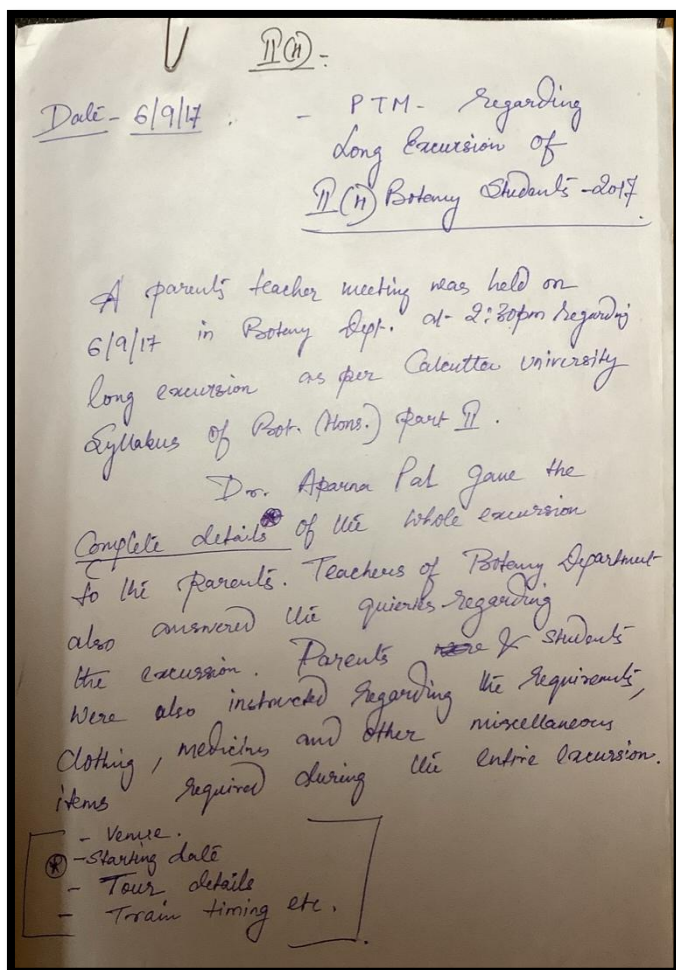 II (H) -
Date - 6/9/17 . - PTM - regarding
Long Excursion of
II (H) Botany Students - 2017.
A parents teacher meeting was held on
6/9/17 in Botany Dept. at 2:30pm regarding
long excursion as per Calcutta university
Syllabus of Bot. (Hons.) Part II .
Dr. Aparna Pal gave the
Complete details of the whole excursion
to the Parents. Teachers of Botany Department
also answered the quieries regarding
the excursion. Parents & students
were also instructed regarding the requirements,
Clothing, medicines and other miscellaneous
items required during the entire excursion.
- Venue.
* - Starting date
- Tour details
- Train timing etc.